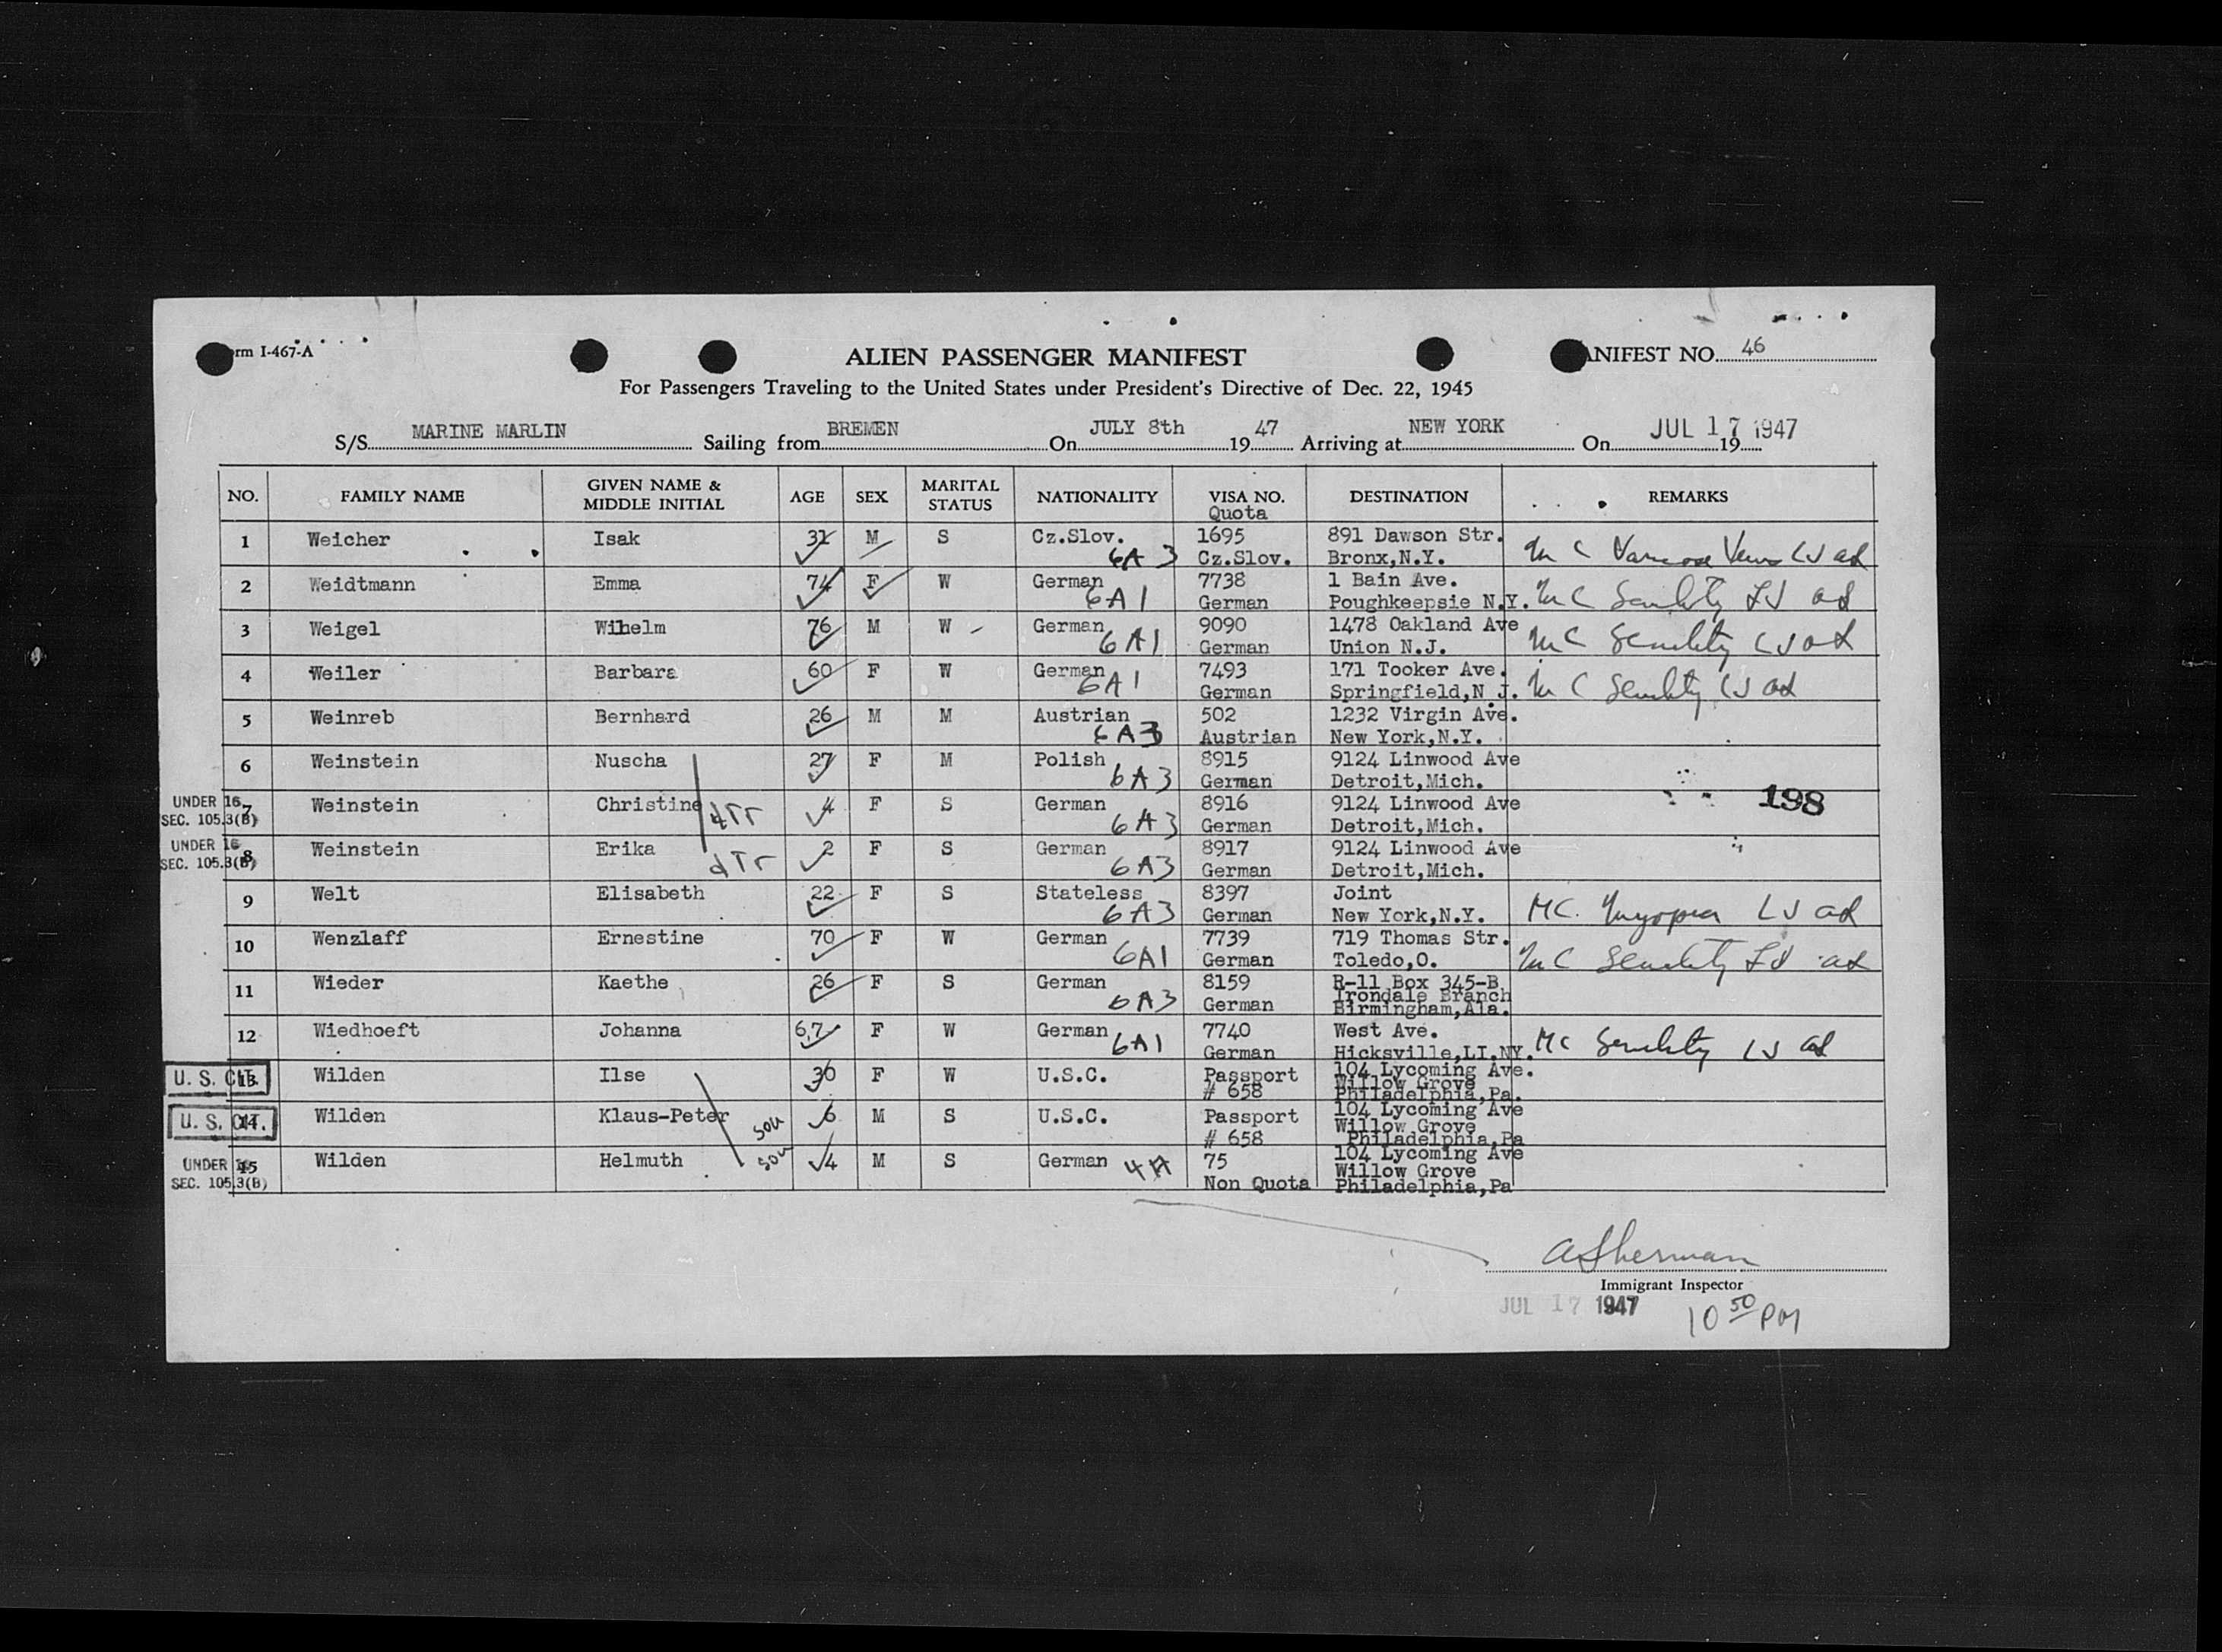 rm I-467-A
ALIEN PASSENGER MANIFEST
ANIFEST NO. 46
For Passengers Traveling to the United States under President's Directive of Dec. 22, 1945
S/S MARINE MARLIN Sailing from BREMEN On JULY 8th 1947 Arriving at NEW YORK On JUL 17 19 1947
NO. FAMILY NAME GIVEN NAME & MIDDLE INITIAL AGE SEX MARITAL STATUS NATIONALITY VISA NO. Quota DESTINATION REMARKS
1 Weicher Isak 31 M S Cz.Slov. 1695 891 Dawson Str.
6A3 Cz.Slov. Bronx,N.Y. MC Varicose Veins LJ ad
2 Weidtmann Emma 74 F W German 7738 1 Bain Ave.
6A1 German Poughkeepsie N.Y. MC Senility LJ ad
3 Weigel Wihelm 76 M W German 9090 1478 Oakland Ave
6A1 German Union N.J. MC Senility LJ ad
4 Weiler Barbara 60 F W German 7493 171 Tooker Ave.
6A1 German Springfield,N J. MC Senility LJ ad
5 Weinreb Bernhard 26 M M Austrian 502 1232 Virgin Ave.
6A3 Austrian New York,N.Y.
6 Weinstein Nuscha 27 F M Polish 8915 9124 Linwood Ave
6A3 German Detroit,Mich.
UNDER 16 SEC. 105.3(B) 7 Weinstein Christine dTr 4 F S German 8916 9124 Linwood Ave 198
6A3 German Detroit,Mich.
UNDER 16 SEC. 105.3(B) 8 Weinstein Erika dTr 2 F S German 8917 9124 Linwood Ave
6A3 German Detroit,Mich.
9 Welt Elisabeth 22 F S Stateless 8397 Joint
6A3 German New York,N.Y. MC. Myopia LJ ad
10 Wenzlaff Ernestine 70 F W German 7739 719 Thomas Str.
6A1 German Toledo,O. MC Senility LJ ad
11 Wieder Kaethe 26 F S German 8159 R-11 Box 345-B
6A3 German Irondale Branch
Birmingham,Ala.
12 Wiedhoeft Johanna 67 F W German 7740 West Ave.
6A1 German Hicksville,LI.NY. MC Senility LJ ad
U. S. CIT. 13 Wilden Ilse 30 F W U.S.C. Passport 104 Lycoming Ave.
# 658 Willow Grove
Philadelphia,Pa.
U. S. CIT. 14 Wilden Klaus-Peter son 6 M S U.S.C. Passport 104 Lycoming Ave
# 658 Willow Grove
Philadelphia,Pa
UNDER 16 SEC. 105.3(B) 15 Wilden Helmuth son 4 M S German 4A 75 104 Lycoming Ave
Non Quota Willow Grove
Philadelphia,Pa
ASherman
Immigrant Inspector
JUL 17 1947 10 50 PM